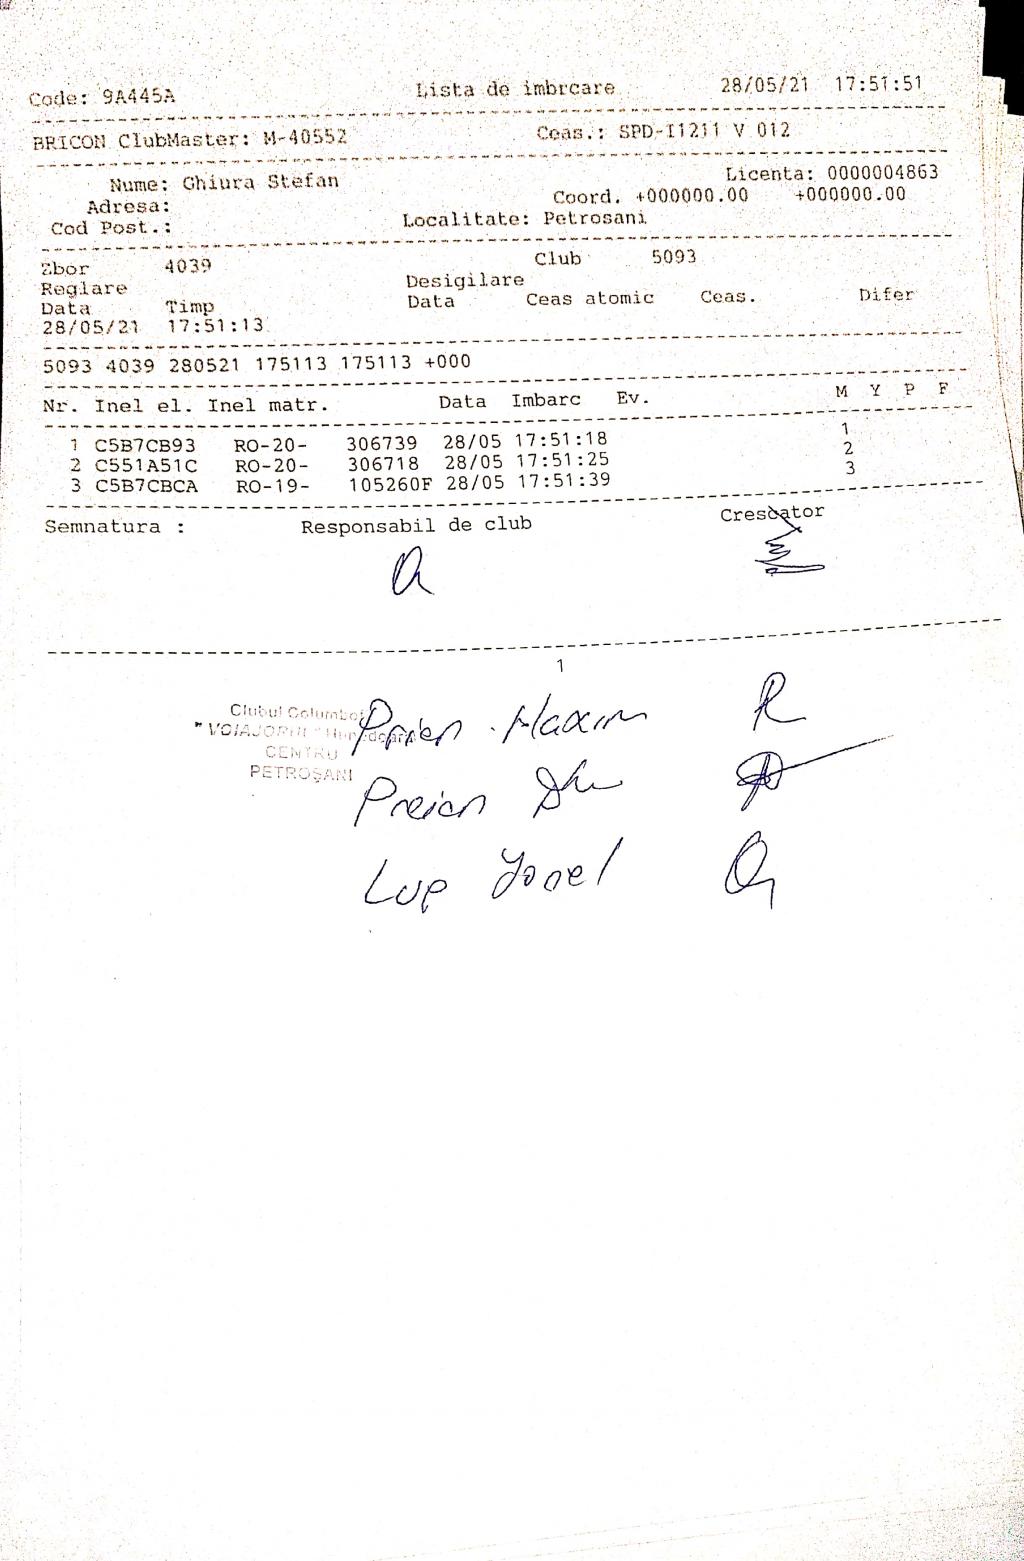 Code: 9A445A Lista de imbrcare 28/05/21 17:51:51
BRICON ClubMaster: M-40552 Ceas.: SPD-I1211 V 012
Nume: Ghiura Stefan Licenta: 0000004863
Adresa: Coord. +000000.00 +000000.00
Cod Post.: Localitate: Petrosani
Zbor 4039 Club 5093
Reglare Desigilare
Data Timp Data Ceas atomic Ceas. Difer
28/05/21 17:51:13
5093 4039 280521 175113 175113 +000
Nr. Inel el. Inel matr. Data Imbarc Ev. M Y P F
1 C5B7CB93 RO-20- 306739 28/05 17:51:18 1
2 C551A51C RO-20- 306718 28/05 17:51:25 2
3 C5B7CBCA RO-19- 105260F 28/05 17:51:39 3
Semnatura : Responsabil de club Crescator
1
Clubul Columbofil
"VOIAJORUL" Hunedoara
CENTRU
PETROŞANI
Maxim
Preian
Lup Ionel